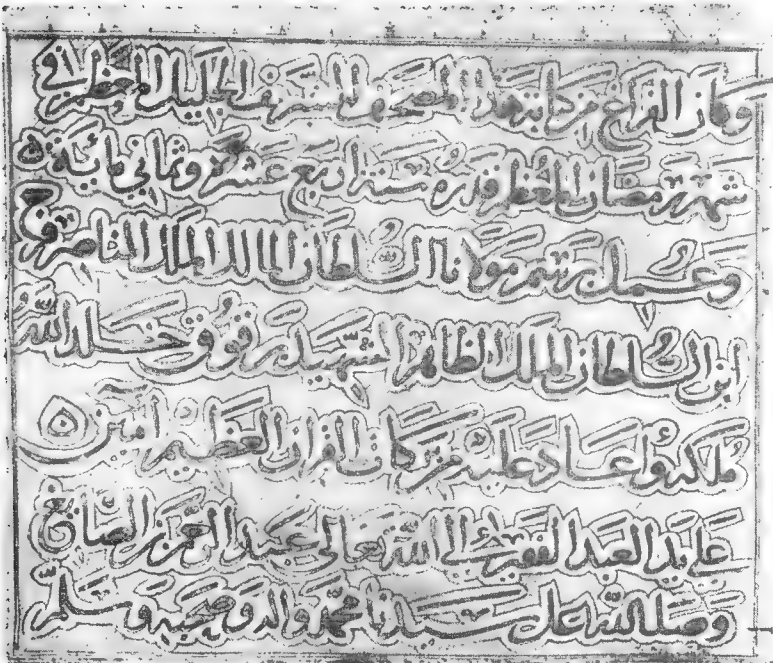 وكان الفراغ من كتابة هذا المصحف الشريف الجليل المعظم في
شهر رمضان المعظم قدره سنة اربع عشرة وثماني مائة
وعمل برسم مولانا السلطان المالك الملك الناصر فرج
ابن السلطان الملك الظاهر الشهيد برقوق خلد الله
ملكه واعاد عليه من بركات القران العظيم امين
على يد العبد الفقير الى الله تعالى عبد الرحمن الصائغ
وصلى الله على سيدنا محمد واله وصحبه وسلم